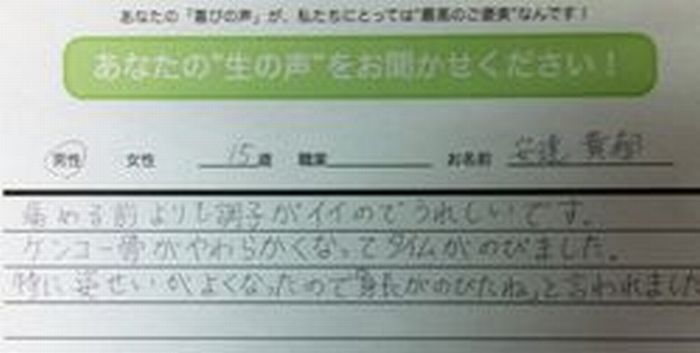 あなたの「喜びの声」が、私たちにとっては"最高のご褒美"なんです！
あなたの"生の声"をお聞かせください！
男性 女性 15歳 職業 お名前 安達
始める前よりも調子がイイのでうれしいです。
ケンコー骨がやわらかくなってタイムがのびました。
特に姿せいがよくなったので「身長がのびたね」と言われました